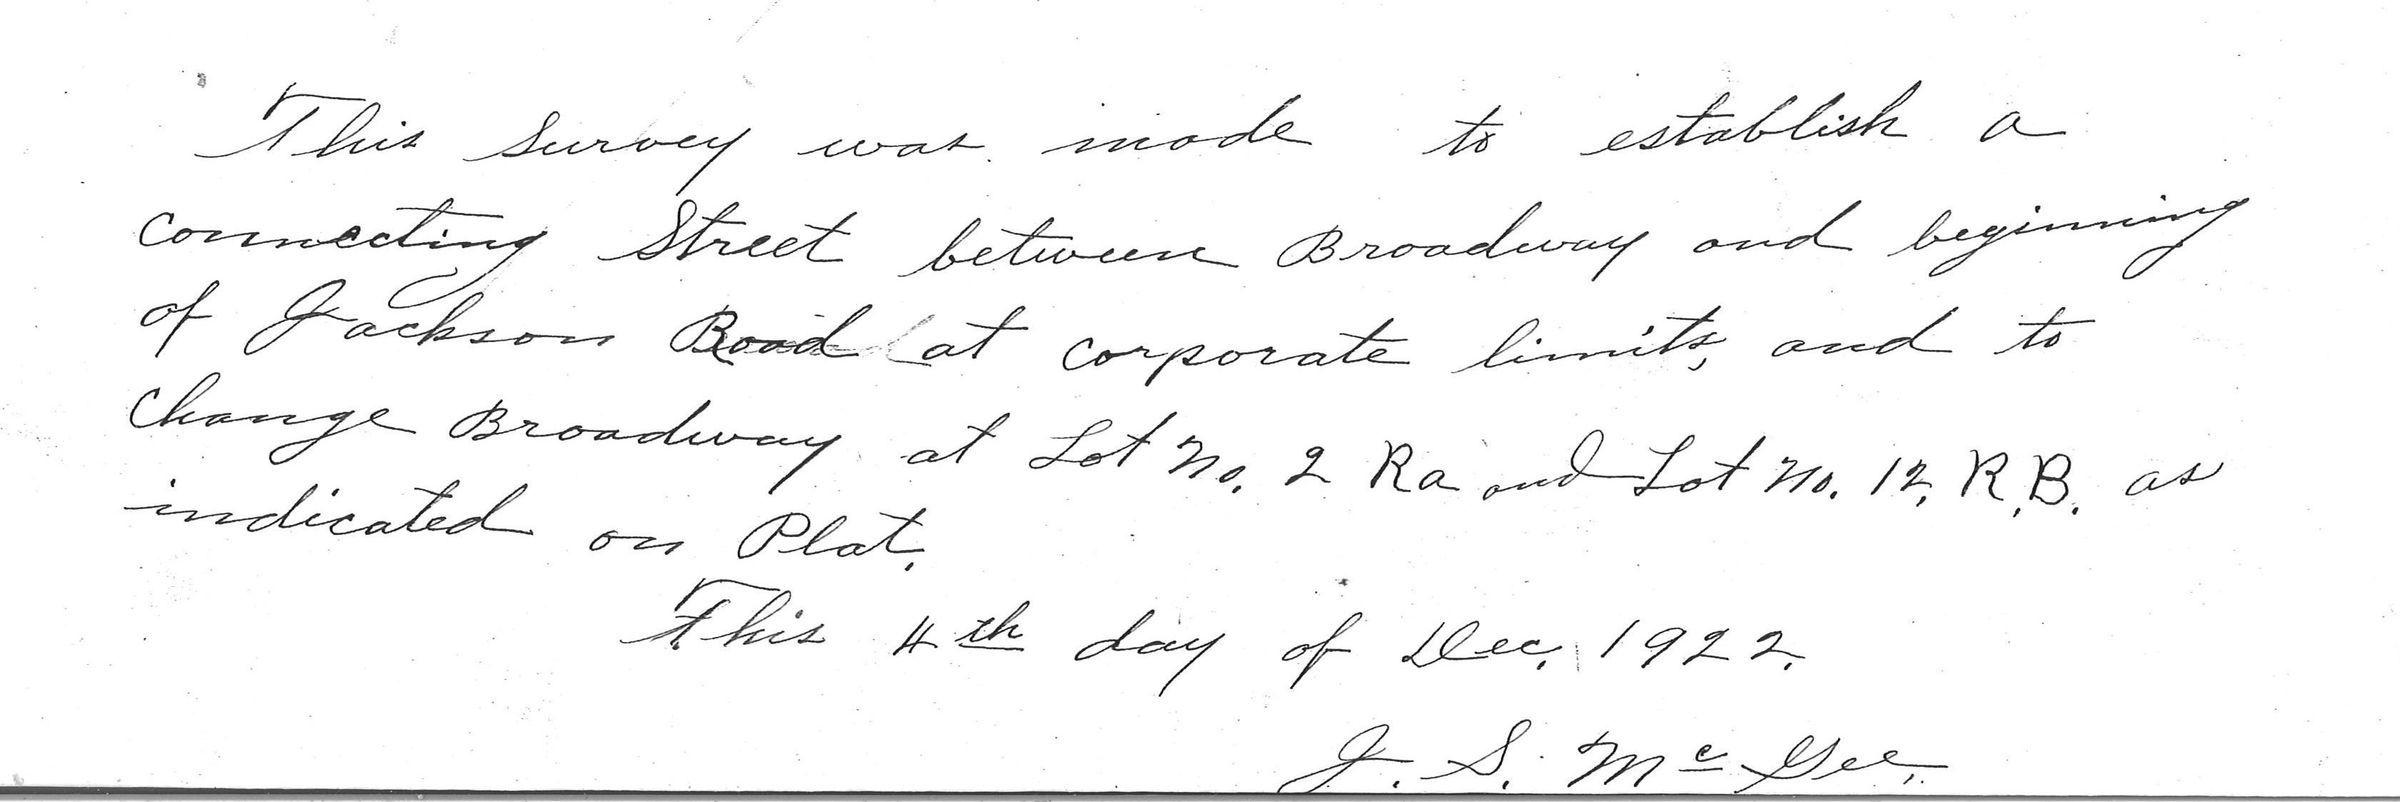 This Survey was made to establish a
connecting Street between Broadway and beginning
of Jackson Road at corporate limits, and to
change Broadway at Lot No. 2 Ra and Lot No. 12, R.B. as
indicated on Plat.
This 4th day of Dec. 1922.
J. S. McGee.